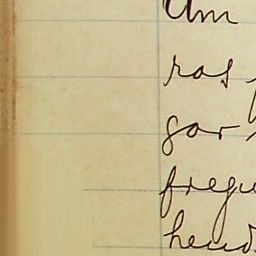 Um
ras
gar
fregu
hend